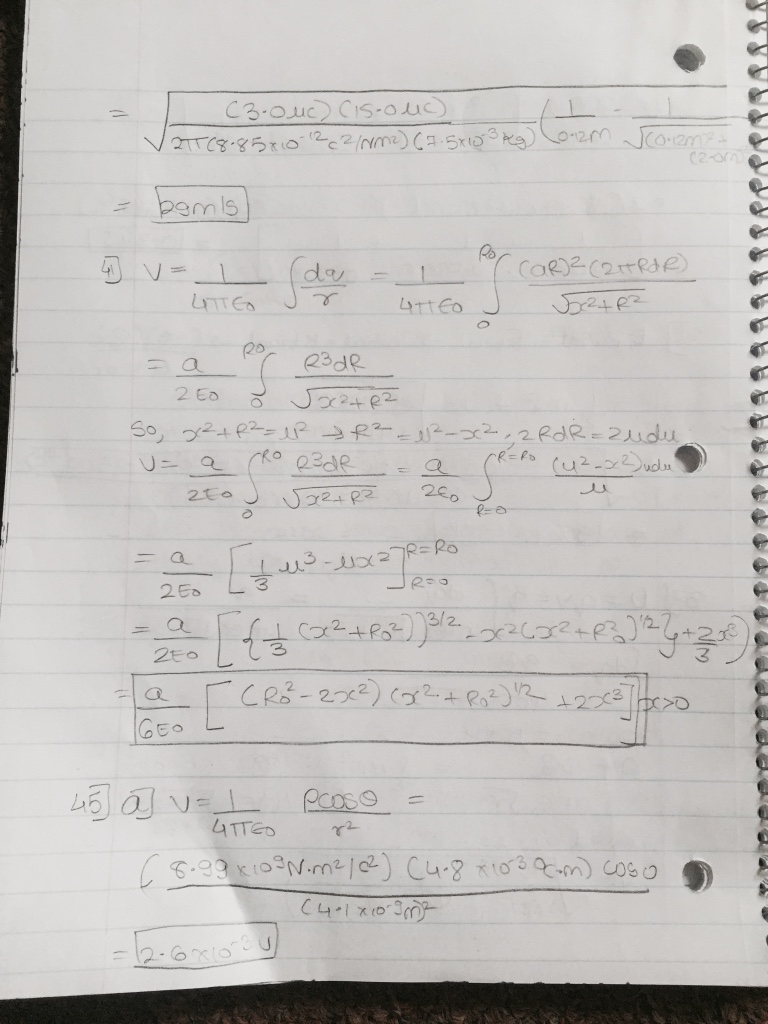 = √ (3.0μc) (15.0μc) / 2π(8.85×10⁻¹²c²/Nm²)(7.5×10⁻³kg) (1/0.12m - 1/√(0.12m)²+(2.0m)
= m/s
41] V = 1/4πε0 ∫ dq/r = 1/4πε0 ∫₀^R0 (aR)²(2πRdR)/√x²+R²
= a/2ε0 ∫₀^R0 R³dR/√x²+R²
So, x²+R²=u² → R²=u²-x², 2RdR=2udu
V= a/2ε0 ∫₀^R0 R³dR/√x²+R² = a/2ε0 ∫_R=0^R=R0 (u²-x²)udu/u
= a/2ε0 [1/3 u³-ux²]_R=0^R=R0
= a/2ε0 [{1/3 (x²+R0²)}^3/2 - x²(x²+R0²)^1/2}+2/3 x³)
= a/6ε0 [(R0²-2x²)(x²+R0²)^1/2 +2x³] x>0
45] a] V= 1/4πε0 Pcosθ/r² =
(8.99×10⁹N.m²/c²) (4.8×10⁻³⁰c.m) cos0 / (4.1×10⁻⁹m)²
= 2.6×10⁻³V